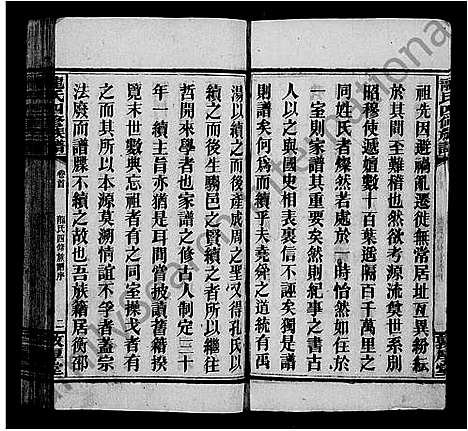 龍氏四修族譜
祖先因避禍亂遷徙無常居址互異粉紜
於其間至難稽也然欲考源流奠世系別
昭穆使遞嬗數十百葉遙隔百千萬里之
同姓氏者燦然若處於一時怡然如在于
一室則家譜其重要矣然則紀事之書古
人以之與國史相表裏信不誣矣獨是譜
則譜矣何爲而續乎夫堯舜之道統有禹
湯以續之而後產成周之聖又得孔氏以
續之而後生騶邑之賢續之者所以繼往
哲開來學者也家譜之修古人制定三十
年一續言亦猶是耳間嘗披讀舊籍揆
覽末世數典忘祖者有之同室操戈者有
之而其所以本源莫溯情誼不孚者蓋宗
法廢而譜牒不續之故也吾族籍居衡邵
龍氏四修族譜
卷首
龍氏四修族譜序
二
敦厚堂